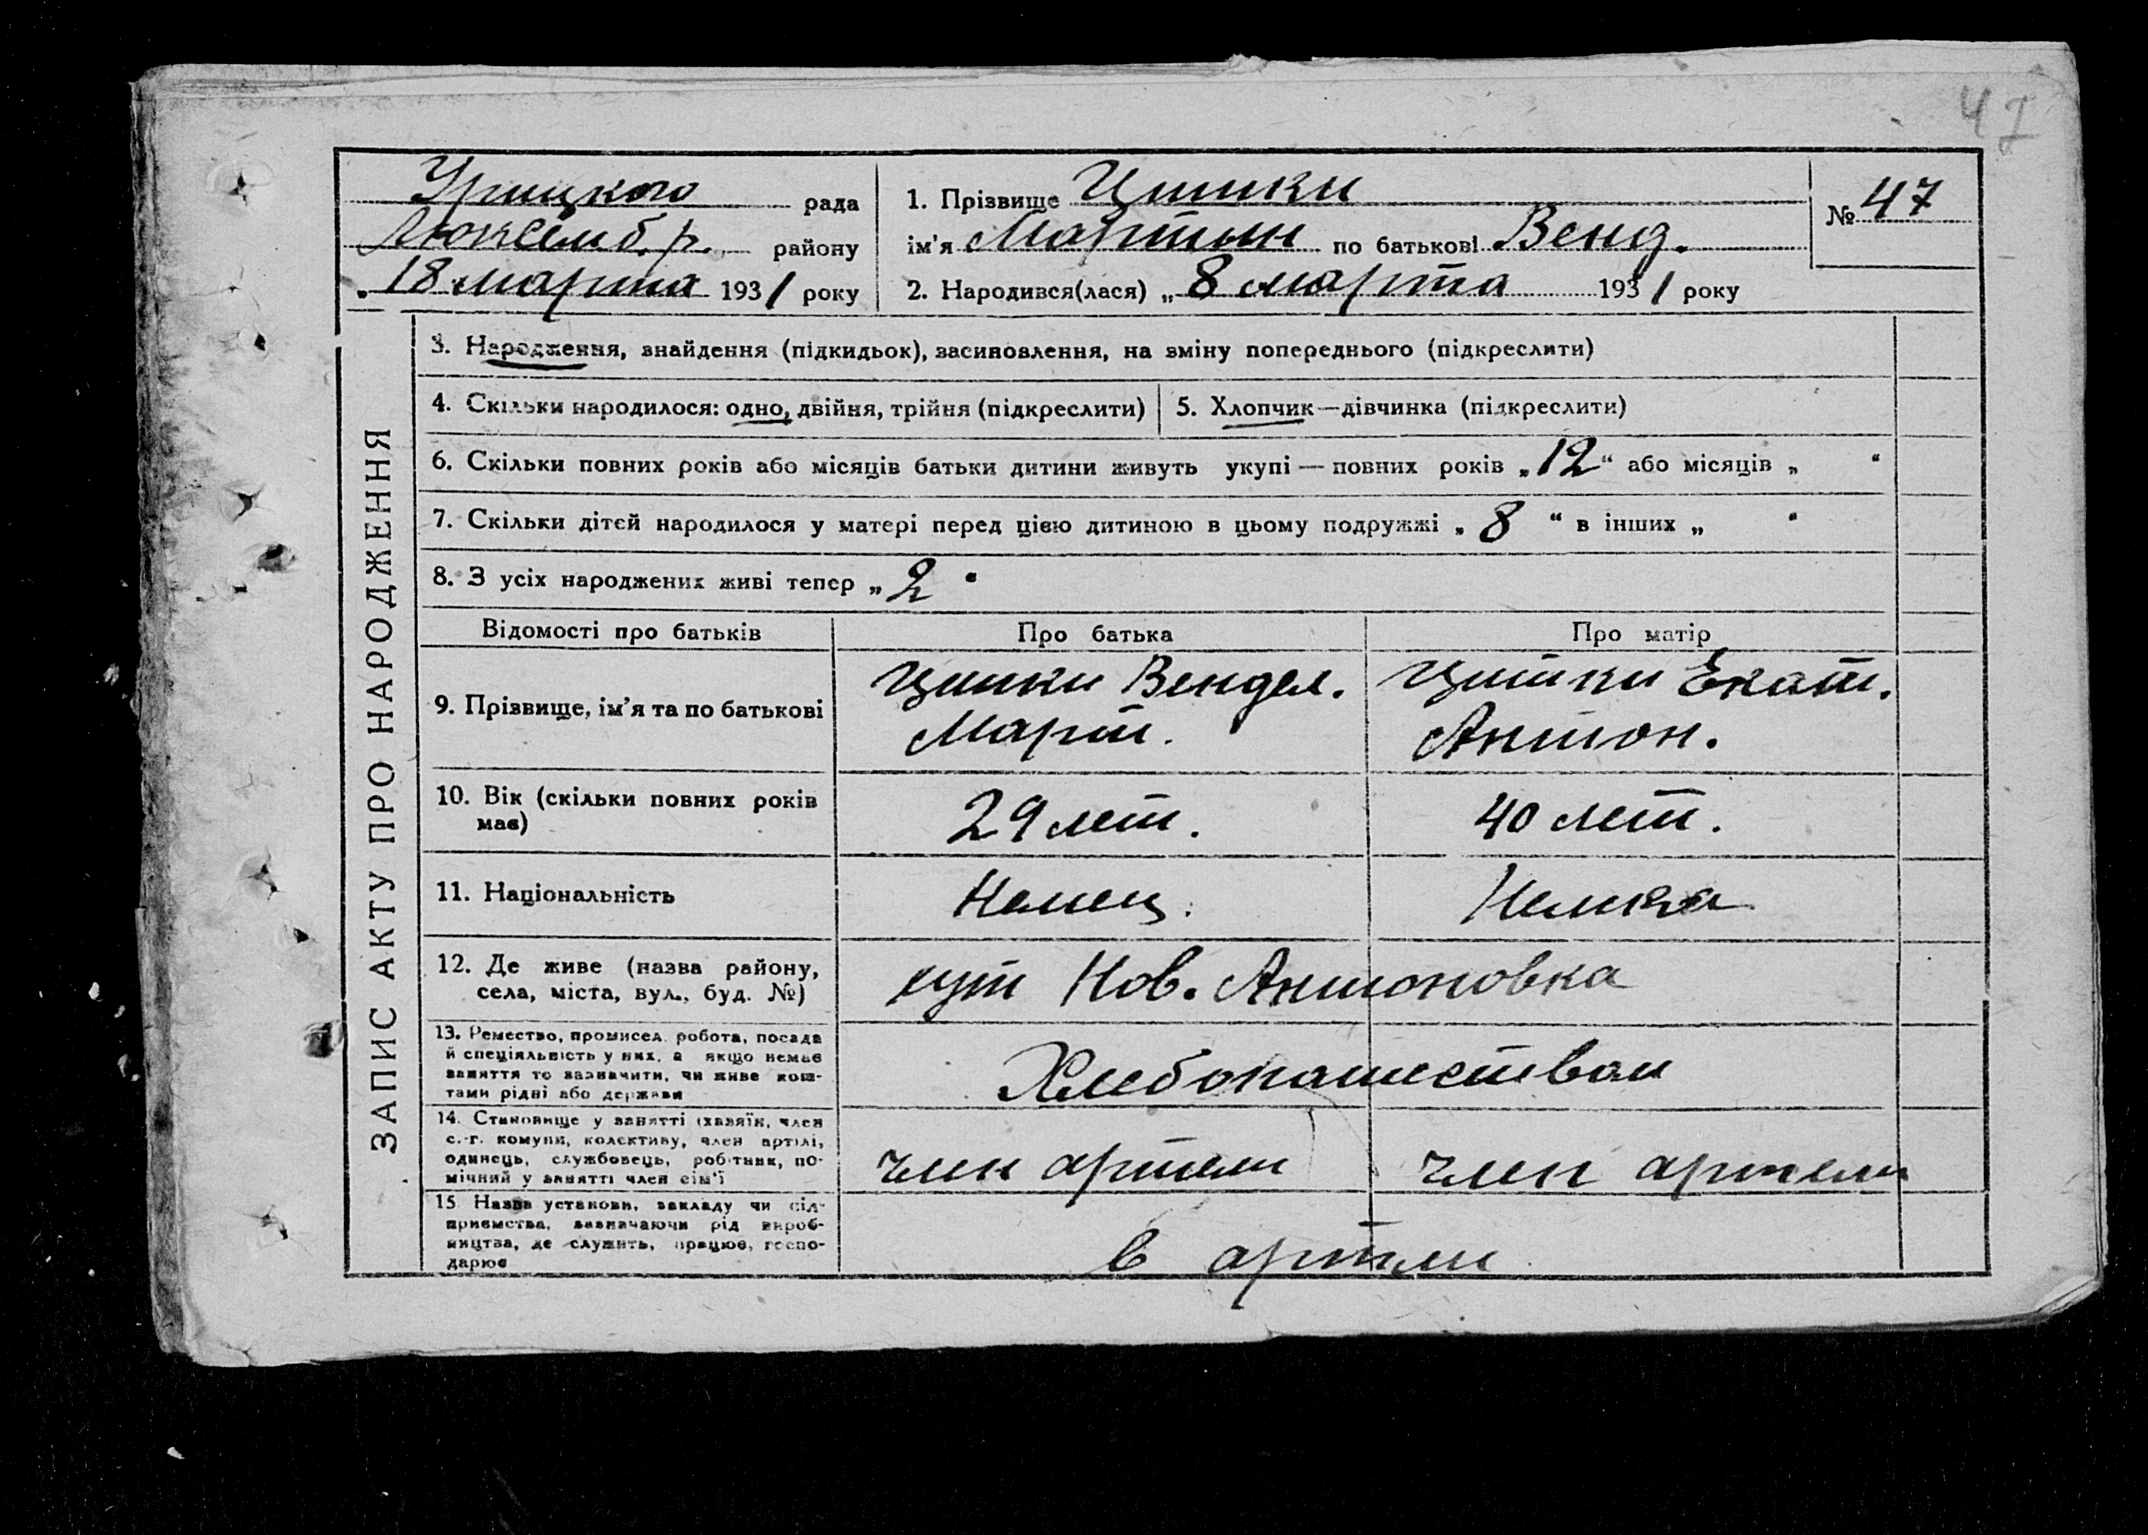 47
Урицкого рада
Люксемб. р. района
„ 18 марта 1931 року
1. Прізвище Цишки
ім'я Мартын по батькові Венд.
2. Народився(лася) „ 8 марта 1931 року
№ 47
ЗАПИС АКТУ ПРО НАРОДЖЕННЯ
3. Народження, знайдення (підкидьок), засиновлення, на зміну попереднього (підкреслити)
4. Скільки народилося: одно, двійня, трійня (підкреслити)
5. Хлопчик—дівчинка (підкреслити)
6. Скільки повних років або місяців батьки дитини живуть укупі — повних років „12“ або місяців „ “
7. Скільки дітей народилося у матері перед цією дитиною в цьому подружжі „ 8 “ в інших „ “
8. З усіх народжених живі тепер „ 2 “
Відомості про батьків
Про батька
Про матір
9. Прізвище, ім'я та по батькові
Цишки Вендел.
Март.
Цишки Екат.
Антон.
10. Вік (скільки повних років
має)
29 лет.
40 лет.
11. Національність
Немец.
Немка
12. Де живе (назва району,
села, міста, вул., буд. №)
хут Нов. Антоновка
13. Ремество, промисел, робота, посада
й спеціяльність у них, а якщо немає
заняття то зазначити, чи живе кош-
тами рідні або держави
Хлебопашеством
14. Становище у занятті (хазяїн, член
с.-г. комуни, колективу, член артілі,
одинець, службовець, робітник, по-
мічний у занятті член сім'ї
член артели
член артели
15 Назва установи, закладу чи під-
приємства, зазначаючи рід вироб-
ництва, де служить, працює, госпо-
дарює
в артели